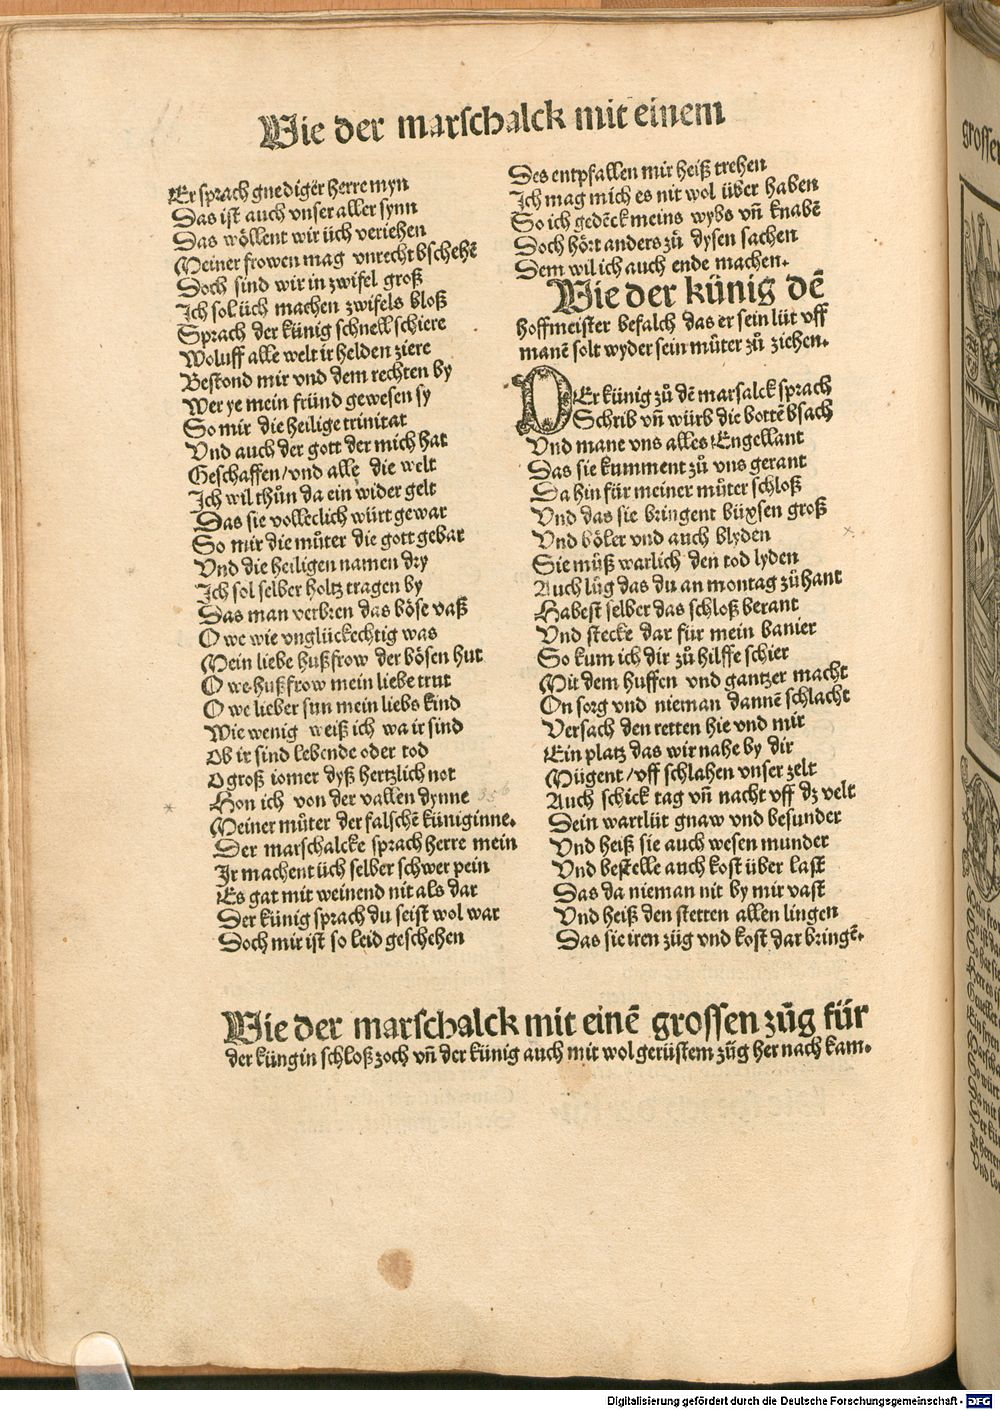 Wie der marschalck mit einem
Er sprach gnediger herre myn
Das ist auch vnser aller synn
Das wöllent wir üch veriehen
Meiner frowen mag vnrecht bschehē
Doch sind wir in zwifel groß
Ich sol üch machen zwifels bloß
Sprach der künig schnell schiere
Woluff alle welt ir helden ziere
Bestond mir vnd dem rechten by
Wer ye mein fründ gewesen sy
So mir die heilige trinitat
Vnd auch der gott der mich hat
Geschaffen/vnd alle die welt
Ich wil thůn da ein wider gelt
Das sie volleclich würt gewar
So mir die můter die gott gebar
Vnd die heiligen namen dry
Ich sol selber holtz tragen by
Das man verbren das böse vaß
O we wie vnglückechtig was
Mein liebe hußfrow der bösen hut
O we hußfrow mein liebe trut
O we lieber sun mein liebs kind
Wie wenig weiß ich wa ir sind
Ob ir sind lebende oder tod
O groß iomer dyß hertzlich not
Hon ich von der vallen dynne
Meiner můter der falschē küniginne.
Der marschalcke sprach herre mein
Ir machent üch selber schwer pein
Es gat mit weinend nit als dar
Der künig sprach du seist wol war
Doch mir ist so leid geschehen
Des entpfallen mir heiß trehen
Ich mag mich es nit wol über haben
So ich gedēck meins wybs vñ knabē
Doch hört anders zů dysen sachen
Dem wil ich auch ende machen.
Wie der künig dē
hoffmeister befalch das er sein lüt vff
manē solt wyder sein můter zů ziehen.
DEr künig zů dē marsalck sprach
Schrib vñ würb die bottē bsach
Vnd mane vns alles Engellant
Das sie kumment zů vns gerant
Da hin für meiner můter schloß
Vnd das sie bringent büxsen groß
Vnd böler vnd auch blyden
Sie můß warlich den tod lyden
Auch lůg das du an montag zů hant
Habest selber das schloß berant
Vnd stecke dar für mein banier
So kum ich dir zů hilffe schier
Mit dem huffen vnd gantzer macht
On sorg vnd nieman dannē schlacht
Versach den retten hie vnd mir
Ein platz das wir nahe by dir
Mügent/vff schlahen vnser zelt
Auch schick tag vñ nacht vff dz velt
Dein wartlüt gnaw vnd besunder
Vnd heiß sie auch wesen munder
Vnd bestelle auch kost über last
Das da nieman nit by mir vast
Vnd heiß den stetten allen lingen
Das sie iren züg vnd kost dar bringē.
Wie der marschalck mit einē grossen zůg für
der küngin schloß zoch vñ der künig auch mit wol gerüstem zůg her nach kam.
Digitalisierung gefördert durch die Deutsche Forschungsgemeinschaft - DFG